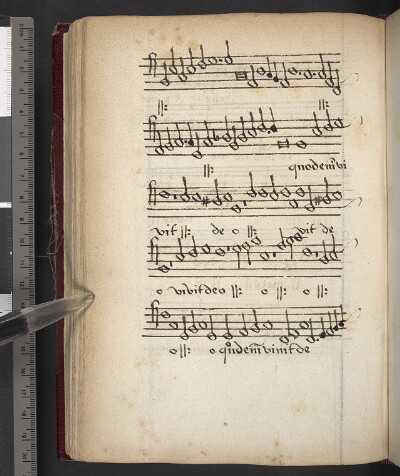 :||: :||:
:||: quodem̄ vi
vit :||: de o :||: vit de
o vivit deo :||: o :||: o :||:
o :||: o quodem̄ vivit de